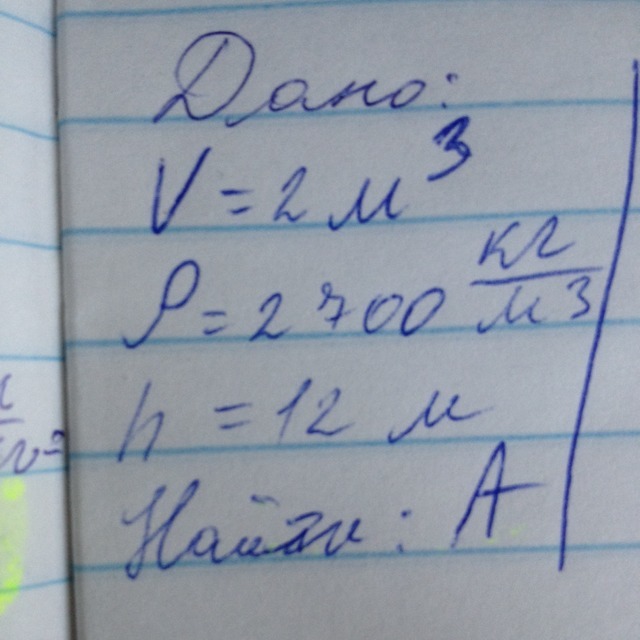 Дано:
V = 2 м³
ρ = 2700 кг/м³
h = 12 м
Найти: A